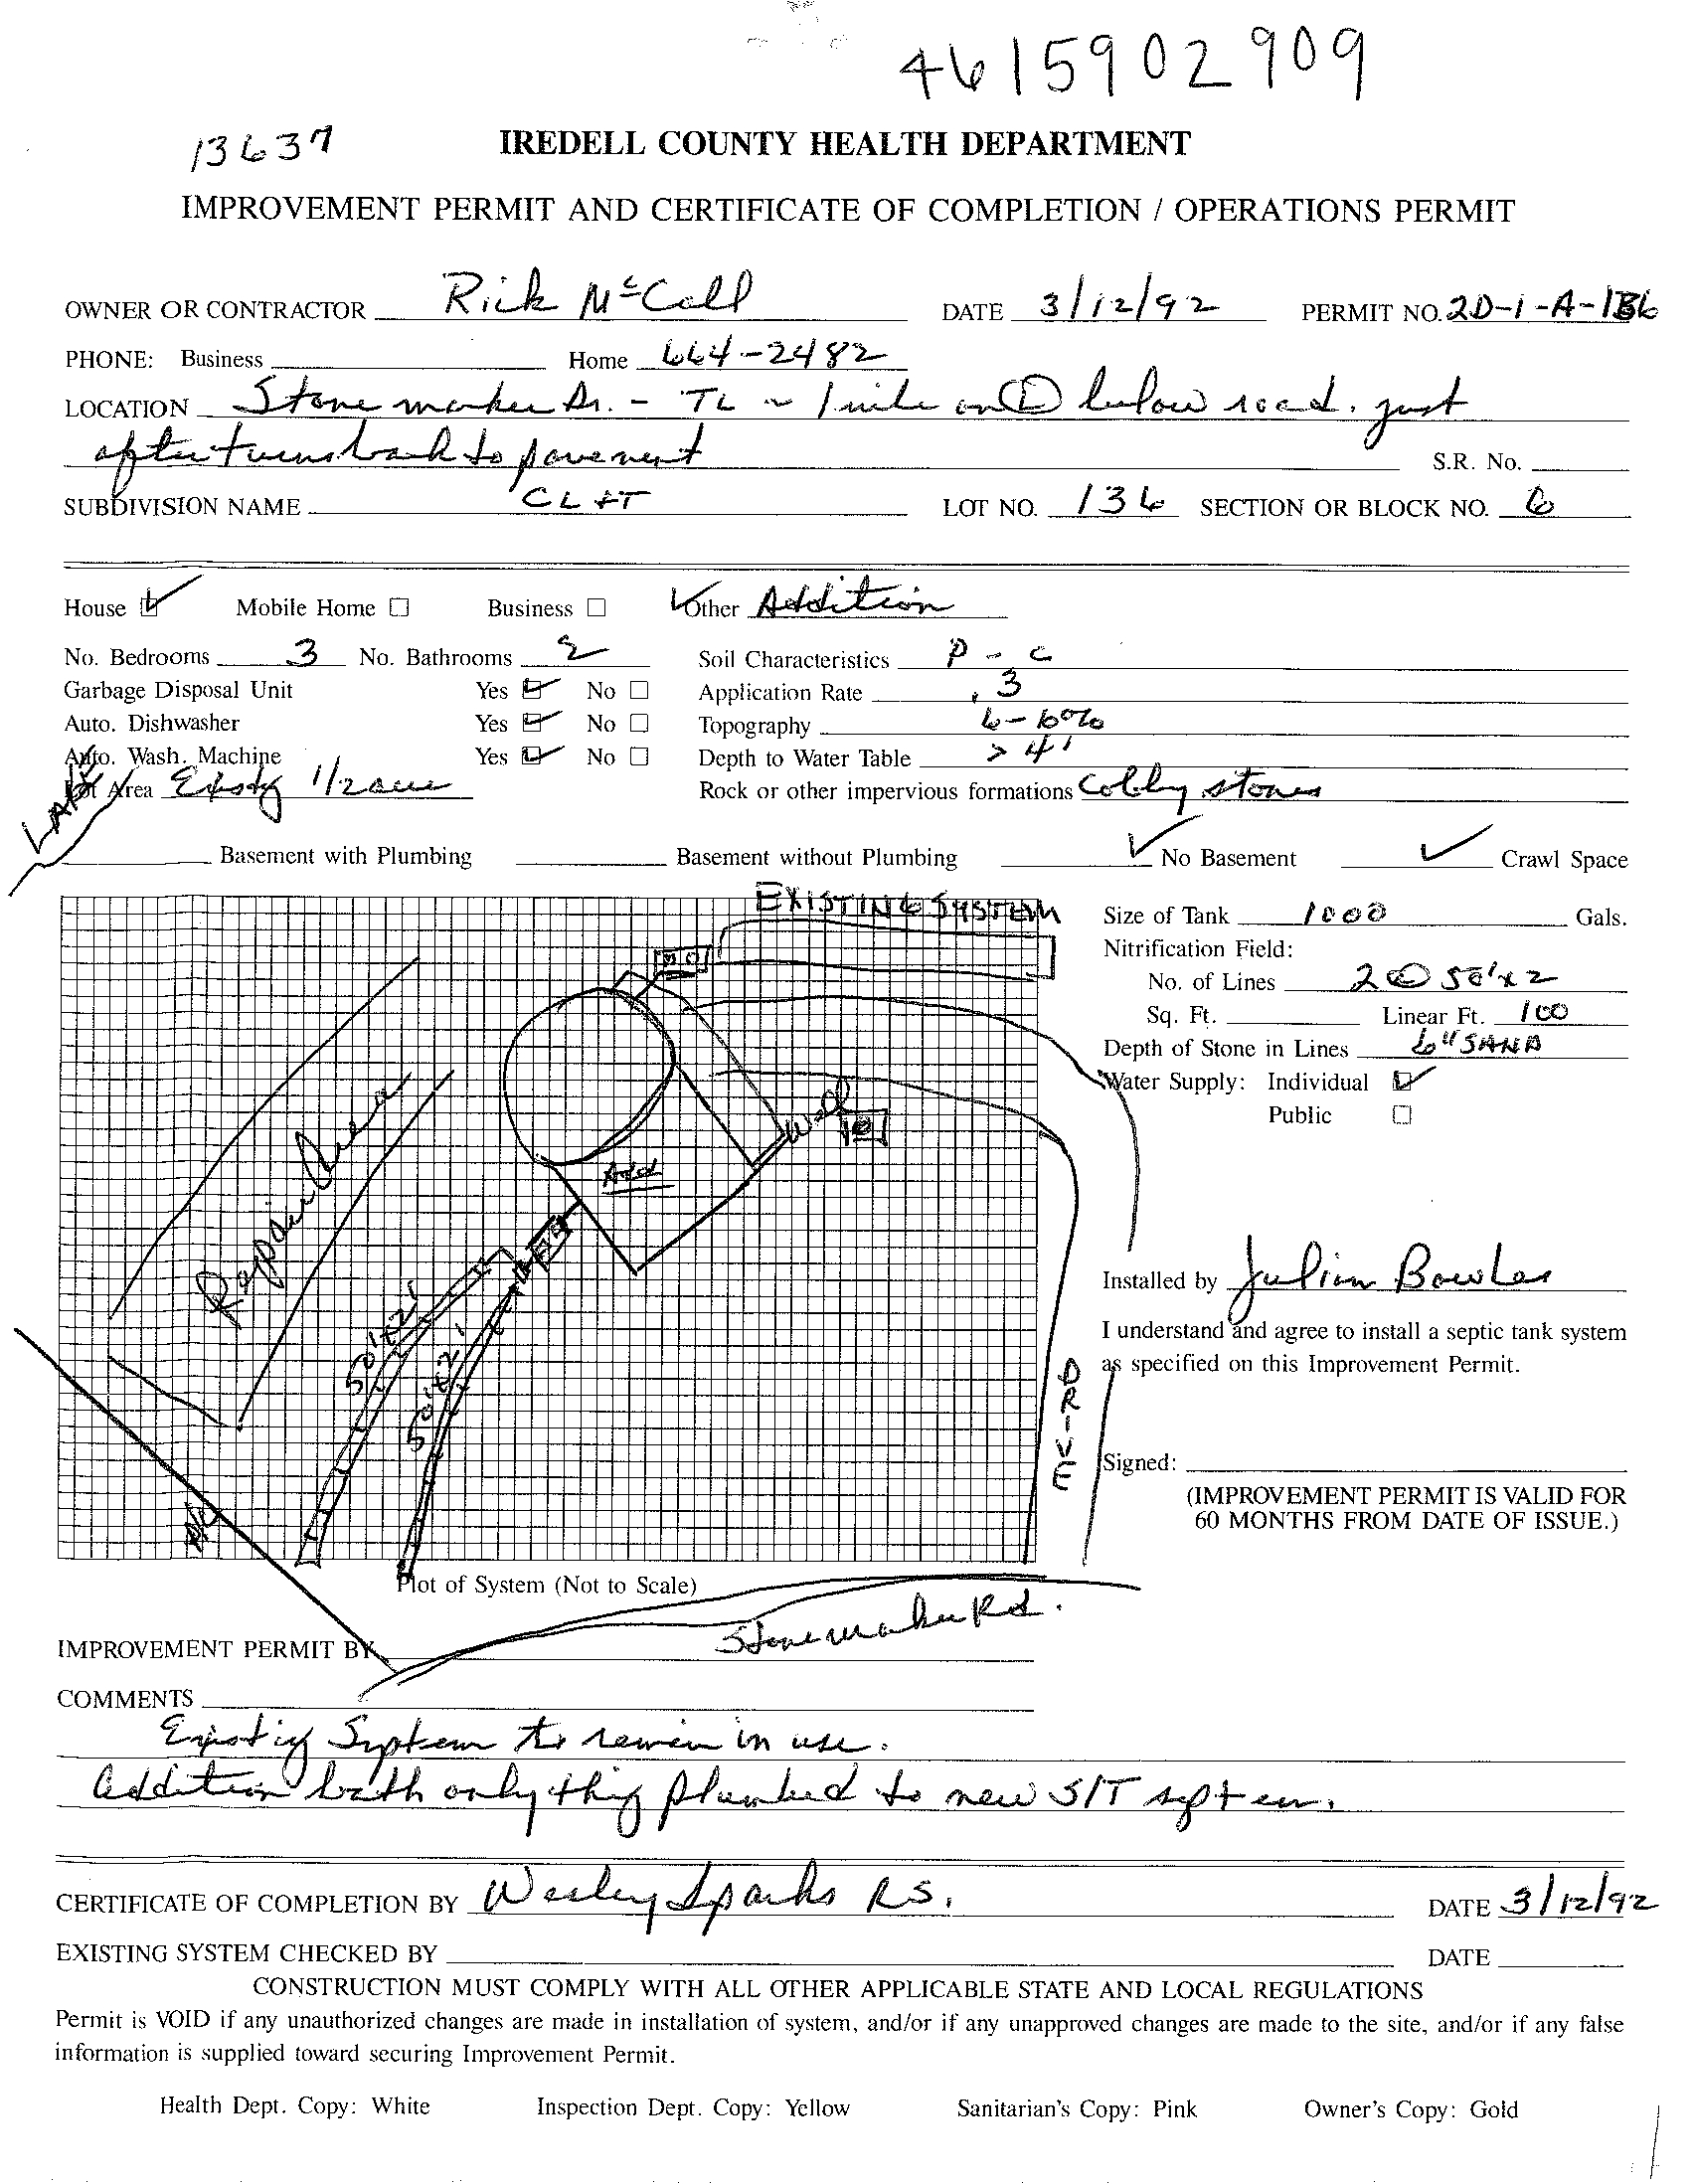 4615902909
13637
IREDELL COUNTY HEALTH DEPARTMENT
IMPROVEMENT PERMIT AND CERTIFICATE OF COMPLETION / OPERATIONS PERMIT
OWNER OR CONTRACTOR Rick McCall DATE 3/12/92 PERMIT NO. 2D-1-A-136
PHONE: Business Home 664-2482
LOCATION Stone marker Dr. - TL ~ 1 mile on L below road. just
after turns back to pavement S.R. No.
SUBDIVISION NAME CL+T LOT NO. 136 SECTION OR BLOCK NO. 6
House Mobile Home Business Other Addition
No. Bedrooms 3 No. Bathrooms 2 Soil Characteristics P - C
Garbage Disposal Unit Yes No Application Rate .3
Auto. Dishwasher Yes No Topography 6-10%
Auto. Wash. Machine Yes No Depth to Water Table > 4'
Lot Area 1/2 acre Rock or other impervious formations Cobbly stones
LAKE
Basement with Plumbing Basement without Plumbing No Basement Crawl Space
EXISTING SYSTEM
Size of Tank 1000 Gals.
Nitrification Field:
No. of Lines 2 @ 50'x2
Sq. Ft. Linear Ft. 100
Depth of Stone in Lines 6" SAND
Water Supply: Individual
Public
Well
Add
Repair Area
50'x2'
50'x2'
DRIVE
Installed by Julian Bowles
I understand and agree to install a septic tank system
as specified on this Improvement Permit.
Signed:
(IMPROVEMENT PERMIT IS VALID FOR
60 MONTHS FROM DATE OF ISSUE.)
Plot of System (Not to Scale)
Stonemarker Rd.
IMPROVEMENT PERMIT BY
COMMENTS
Existing System to remain in use.
Addition bath only thing plumbed to new S/T system.
CERTIFICATE OF COMPLETION BY Wesley Sparks RS. DATE 3/12/92
EXISTING SYSTEM CHECKED BY DATE
CONSTRUCTION MUST COMPLY WITH ALL OTHER APPLICABLE STATE AND LOCAL REGULATIONS
Permit is VOID if any unauthorized changes are made in installation of system, and/or if any unapproved changes are made to the site, and/or if any false
information is supplied toward securing Improvement Permit.
Health Dept. Copy: White Inspection Dept. Copy: Yellow Sanitarian's Copy: Pink Owner's Copy: Gold